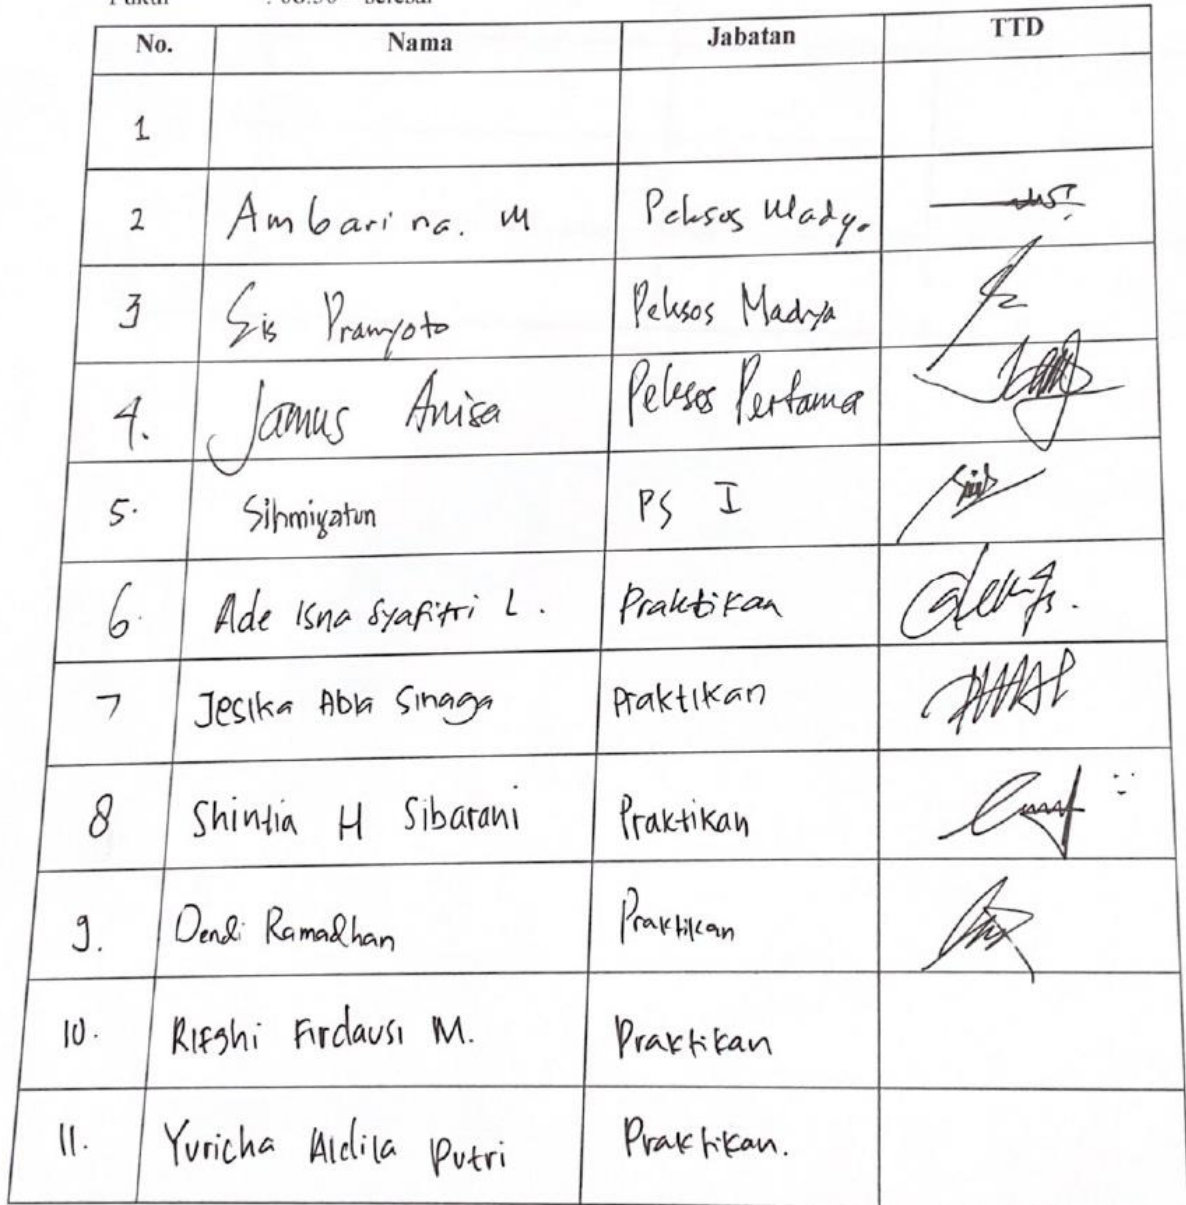 : 08.30
No. Nama Jabatan TTD
1
2 Ambarina. M Peksos Madya
3 Sis Pramyoto Peksos Madya
4. Jamus Anisa Peksos Pertama
5. Sihmiyatun PS I
6. Ade Isna Syafitri L. Praktikan
7 Jesika Abia Sinaga Praktikan
8 Shintia H Sibarani Praktikan
9. Dendi Ramadhan Praktikan
10. Rifghi Firdausi M. Praktikan
11. Yuricha Aldila Putri Praktikan.